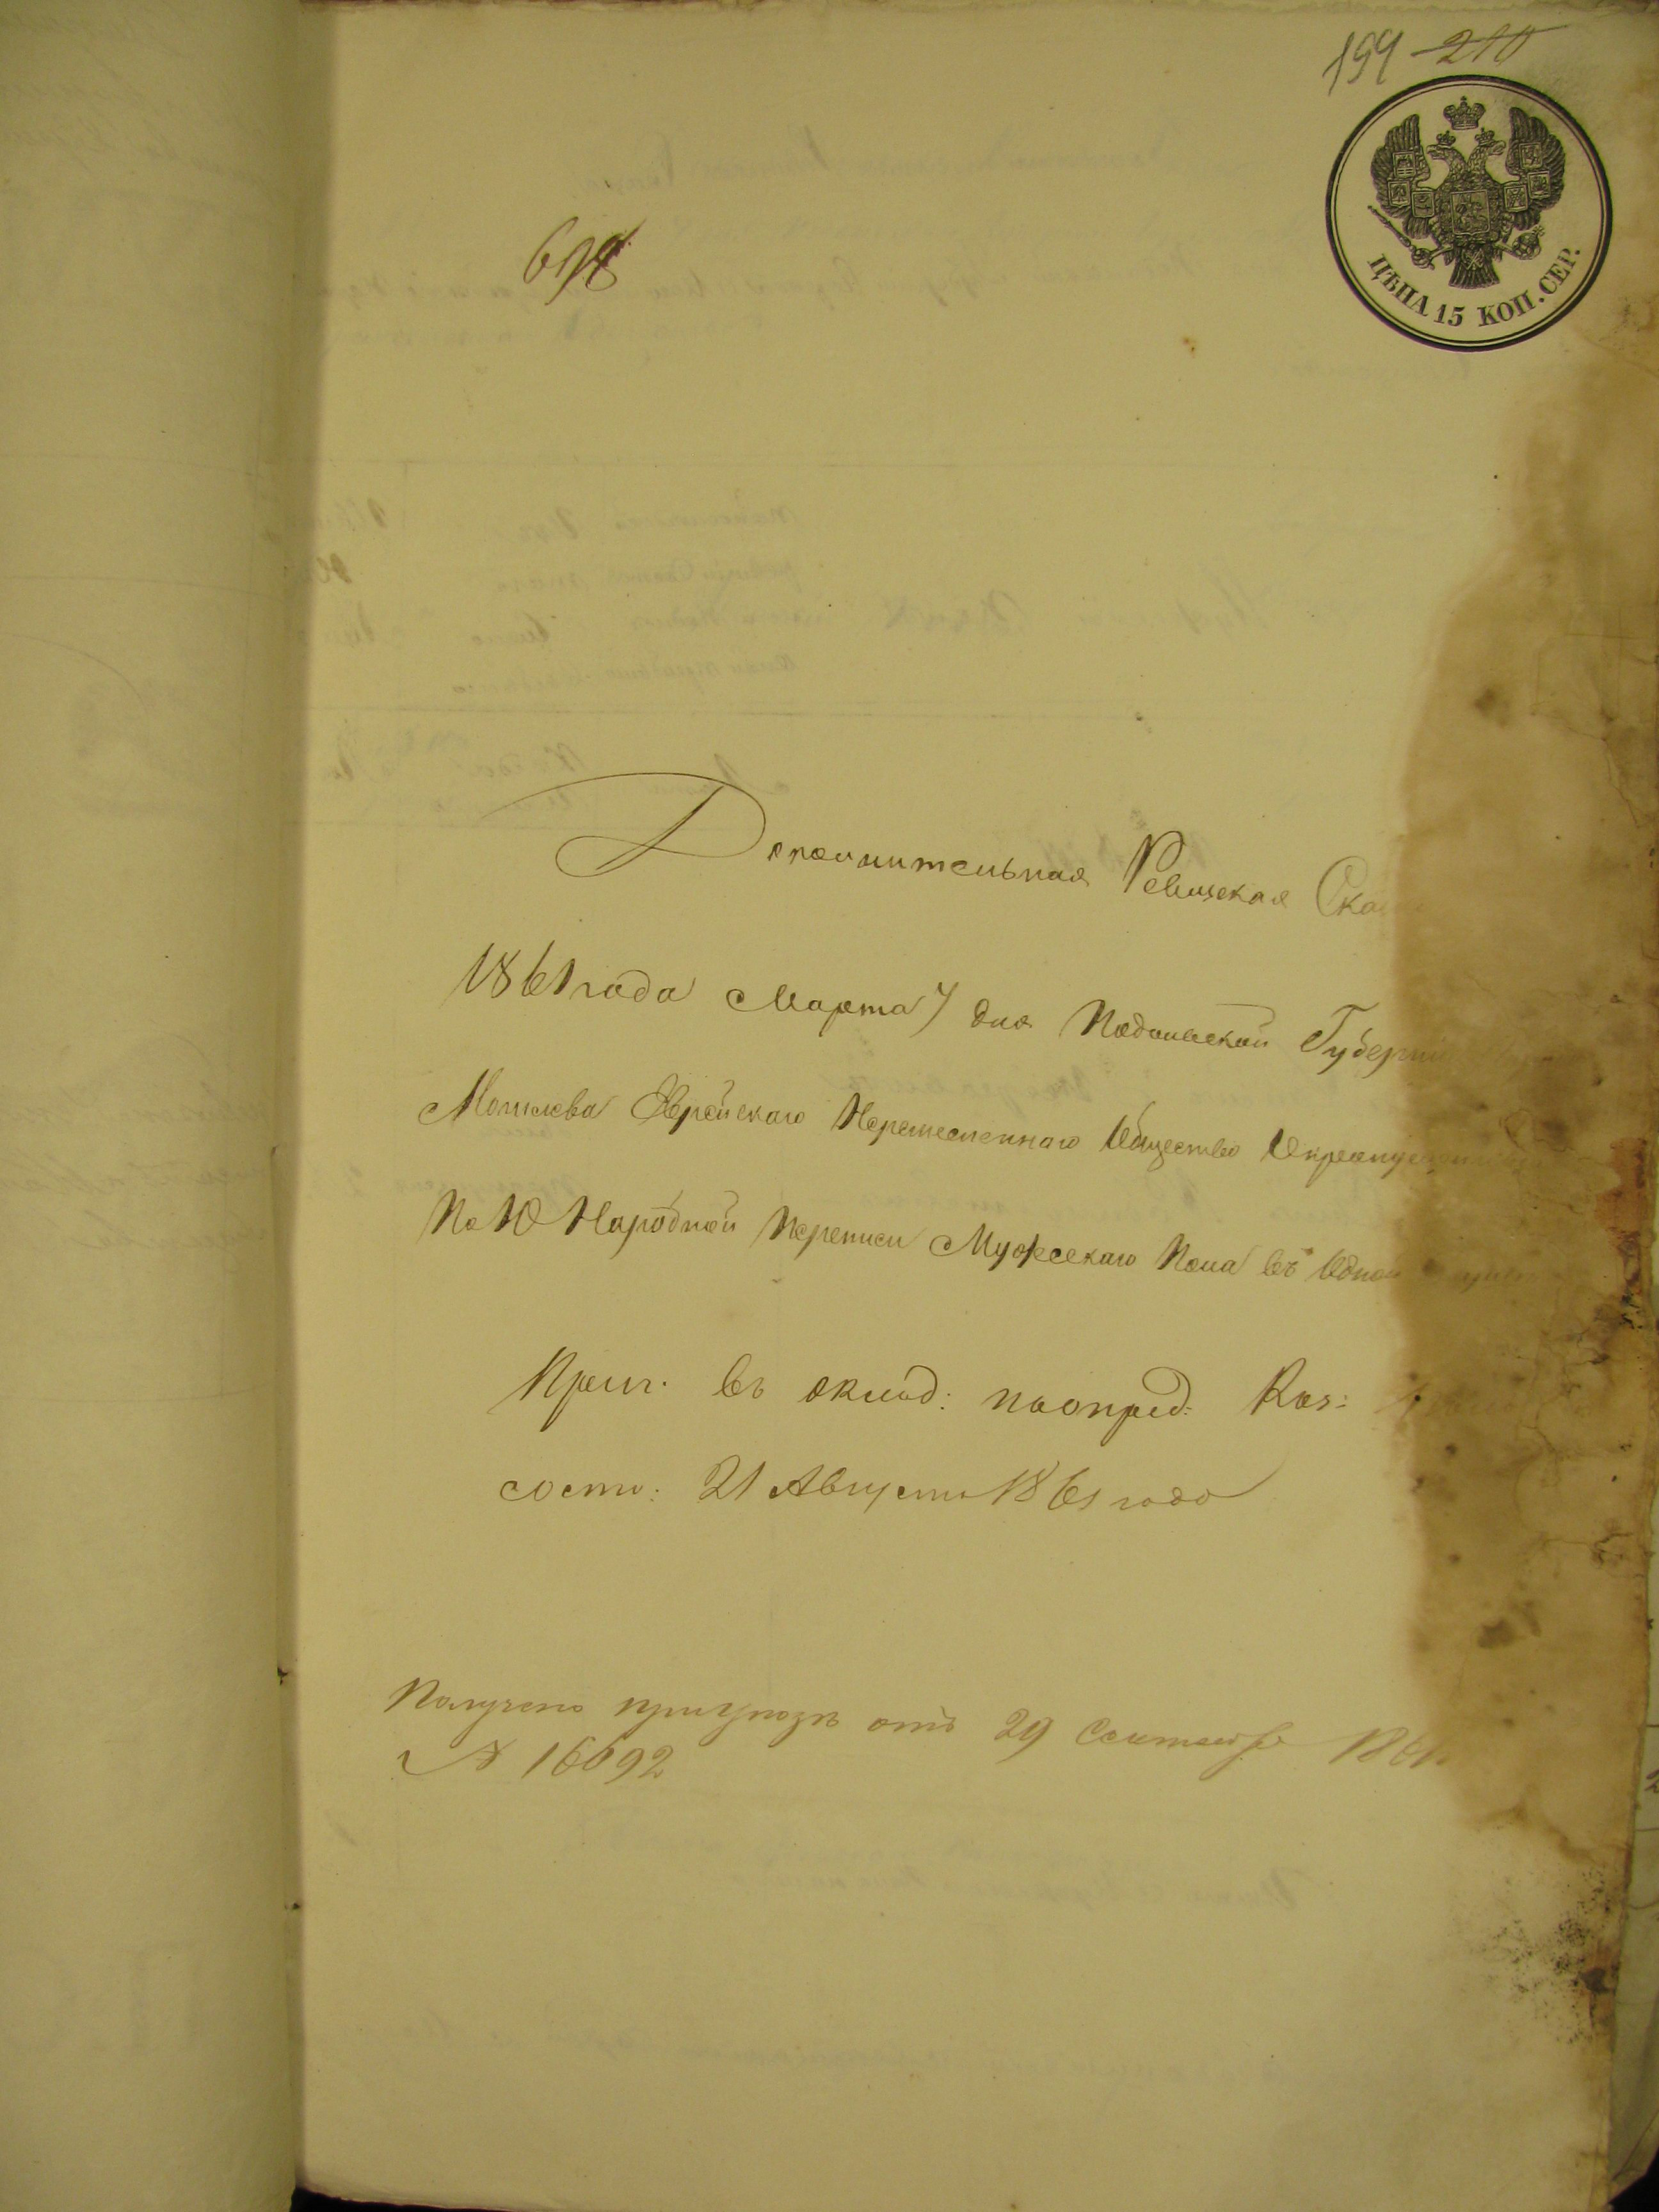 199 210
ЦѢНА 15 КОП. СЕР.
698
Дополнительная Ревизская Ска
1861 года Марта 7 дня Подольской Губернии
Могилева Еврейскаго Неремесленнаго Общество О
По 10 Народной Переписи Мужескаго Пола въ Одной
Прич. въ оклад: по опред: Каз:
сост: 21 Августа 1861 года
Получено при указѣ отъ 29 Сентября 1861
№ 16692